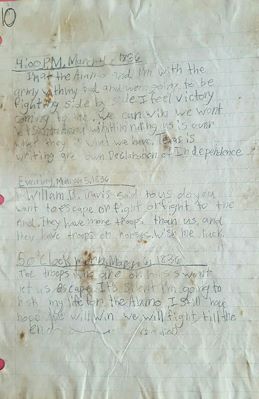 10
4:00 P.M. March 4, 1836
That the Alamo and I'm with the
army with my dad and were going to be
fighting side by side I feel victory
coming to me. We can win we wont
let Santa Anna
what they want we have. Texas is
writing are own Declaration of Independence.
Evening, March 5, 1836
William B. Travis said to us do you
want to escape or fight or fight to the
end, they have more troops than us, and
they have troops on horses. Wish me luck.
5 o'clock March 6, 1836
The troops who are on horses wont
let us escape. It's silent I'm going to
risk my life for the Alamo. I still have
hope we will win we will fight till the
end